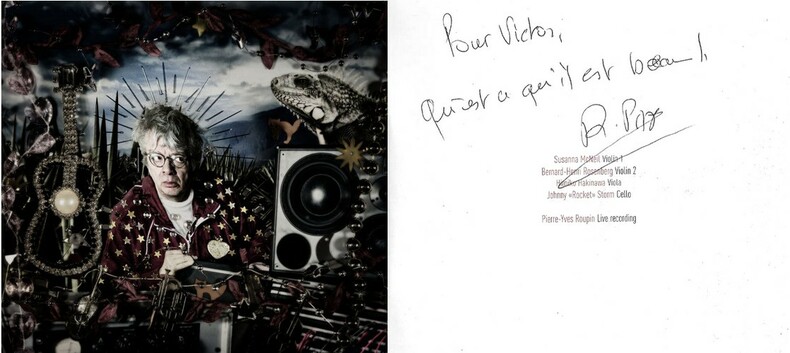 Pour Victor,
qu'est ce qu'il est beau !
Susanna McNeil Violin 1
Bernard-Henri Rosenberg Violin 2
Hakinawa Viola
Johnny «Rocket» Storm Cello
Pierre-Yves Roupin Live recording